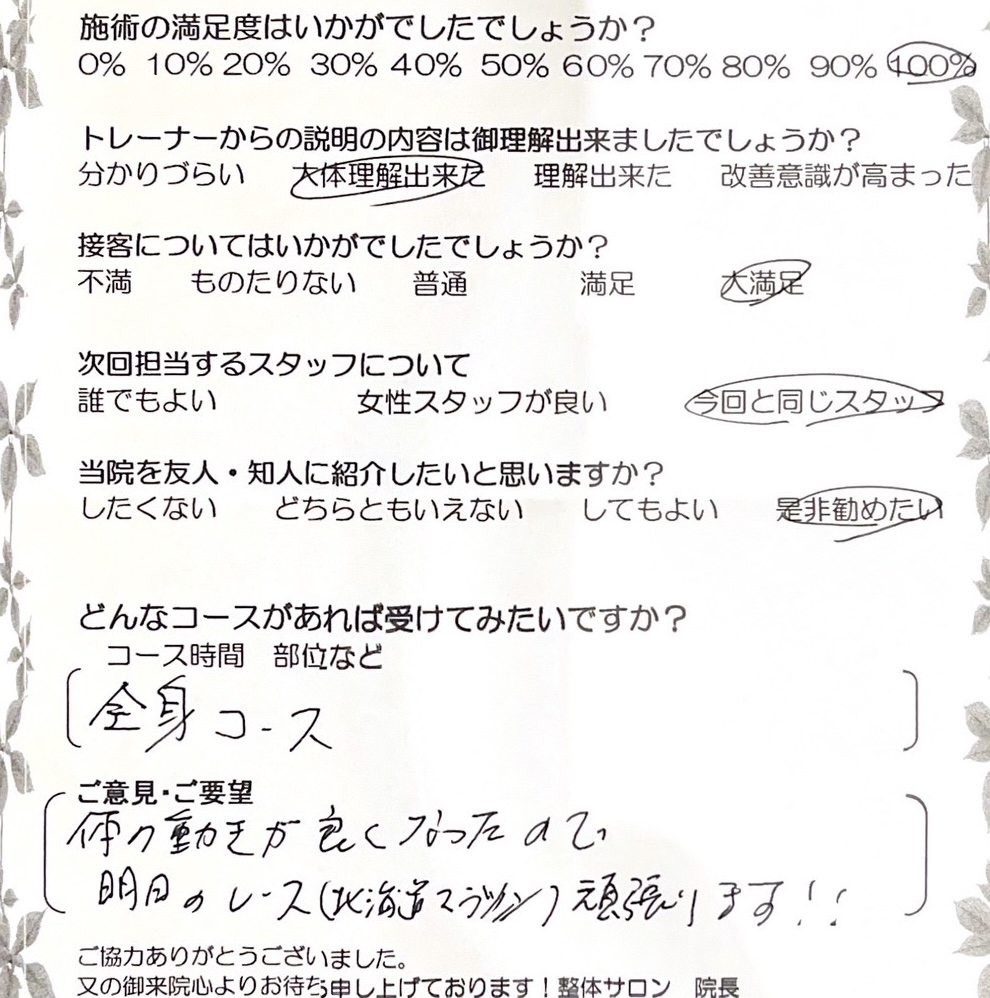 施術の満足度はいかがでしたでしょうか？
0% 10% 20% 30% 40% 50% 60% 70% 80% 90% 100%
トレーナーからの説明の内容は御理解出来ましたでしょうか？
分かりづらい 大体理解出来た 理解出来た 改善意識が高まった
接客についてはいかがでしたでしょうか？
不満 ものたりない 普通 満足 大満足
次回担当するスタッフについて
誰でもよい 女性スタッフが良い 今回と同じスタッフ
当院を友人・知人に紹介したいと思いますか？
したくない どちらともいえない してもよい 是非勧めたい
どんなコースがあれば受けてみたいですか？
コース時間 部位など
全身コース
ご意見・ご要望
体の動きが良くなったので
明日のレース(北海道マラソン)頑張ります!!
ご協力ありがとうございました。
又の御来院心よりお待ち申し上げております！整体サロン 院長